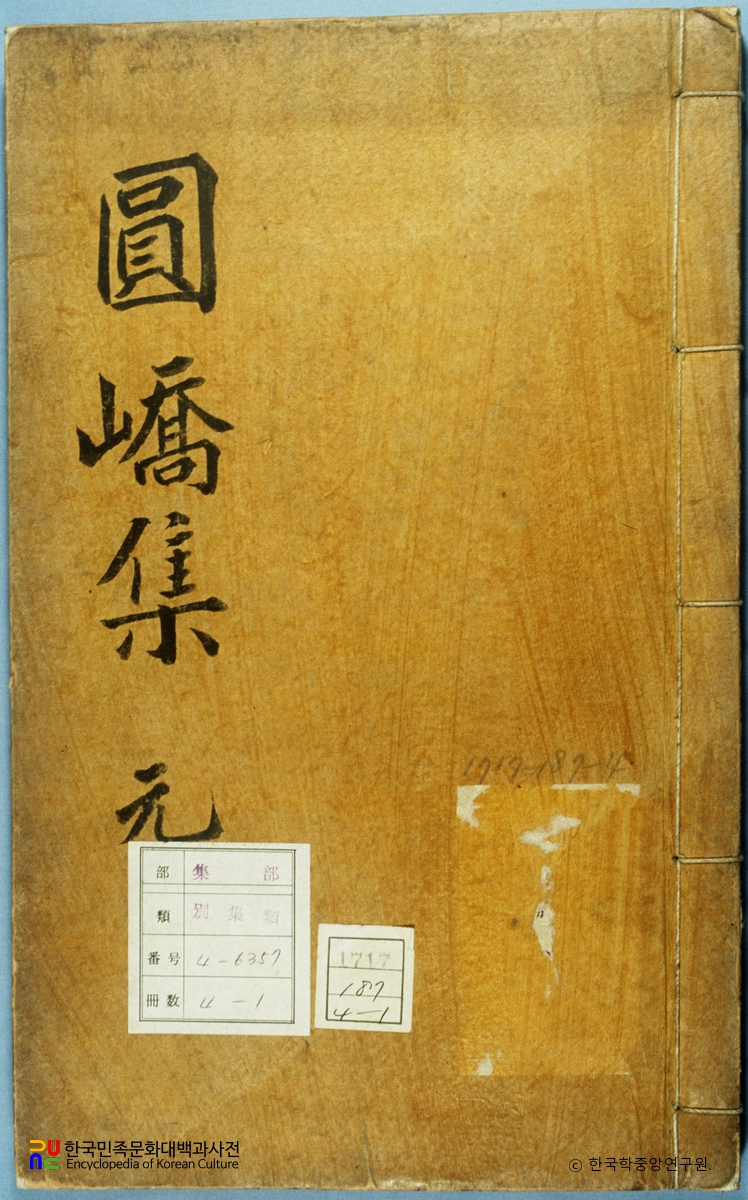 圓嶠集 元
1717-187-4
部 集部
類 別集類
番号 4-6357
冊数 4-1
1717
187
4-1
한국민족문화대백과사전
Encyclopedia of Korean Culture
© 한국학중앙연구원